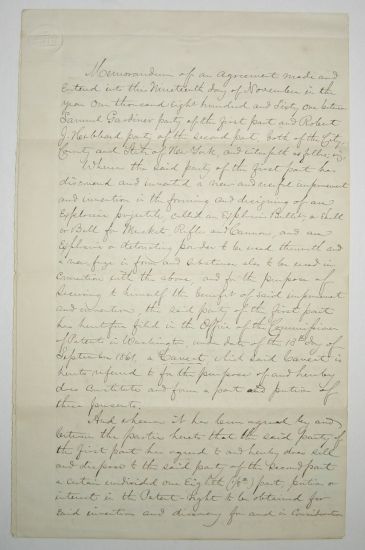 Memorandum of an Agreement made and
entered into the Nineteenth day of November in the
year One thousand eight hundred and Sixty one between
Samuel Gardiner party of the first part and Robert
J. Hubbard party of the second part, both of the City
County and State of New York, and
Whereas the said party of the first part has
discovered and invented a new and useful improvement
and invention in the forming and designing of an
Explosive projectile, called an Explosive Bullet, a Shell
or Ball for Musket Rifle and Cannon, and an
Explosive or detonating powder to be used therewith and
a new fuze in form and substance also to be used in
Connection with the above, and for the purpose of
Securing to himself the benefit of said improvement
and invention, the said party of the first part
has heretofore filed in the Office of the Commissioner
of Patents in Washington, under date of the 13th day of
September 1861, a Caveat, which said Caveat is
hereto referred to for the purpose of and hereby
does Constitute and form a part and portion of
these presents.
And whereas it has been agreed by and
between the parties hereto that the said party of
the first part has agreed to and hereby does sell
and dispose to the said party of the second part
a certain undivided one Eighth (1/8th) part, portion or
interest in the Patent-Right to be obtained for
said invention and discovery for and in Consideration